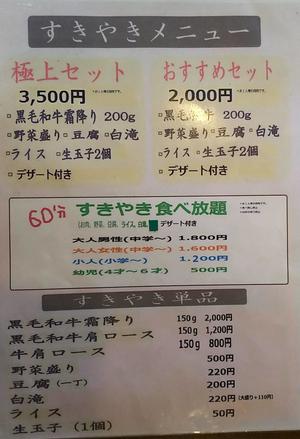 すきやきメニュー
極上セット
3,500円
黒毛和牛霜降り 200g
野菜盛り 豆腐 白滝
ライス 生玉子2個
デザート付き
おすすめセット
2,000円
黒毛和牛 200g
野菜盛り 豆腐 白滝
ライス 生玉子2個
デザート付き
60分 すきやき食べ放題
(お肉、野菜、豆腐、ライス、白滝 デザート付き
大人男性(中学〜) 1.800円
大人女性(中学〜) 1.600円
小人(小学〜) 1.200円
幼児(4才〜6才) 500円
すきやき単品
黒毛和牛霜降り 150g 2,000円
黒毛和牛肩ロース 150g 1,200円
牛肩ロース 150g 800円
野菜盛り 500円
豆腐(一丁) 220円
白滝 200円
ライス 220円(大盛り+110円)
生玉子(1個) 50円